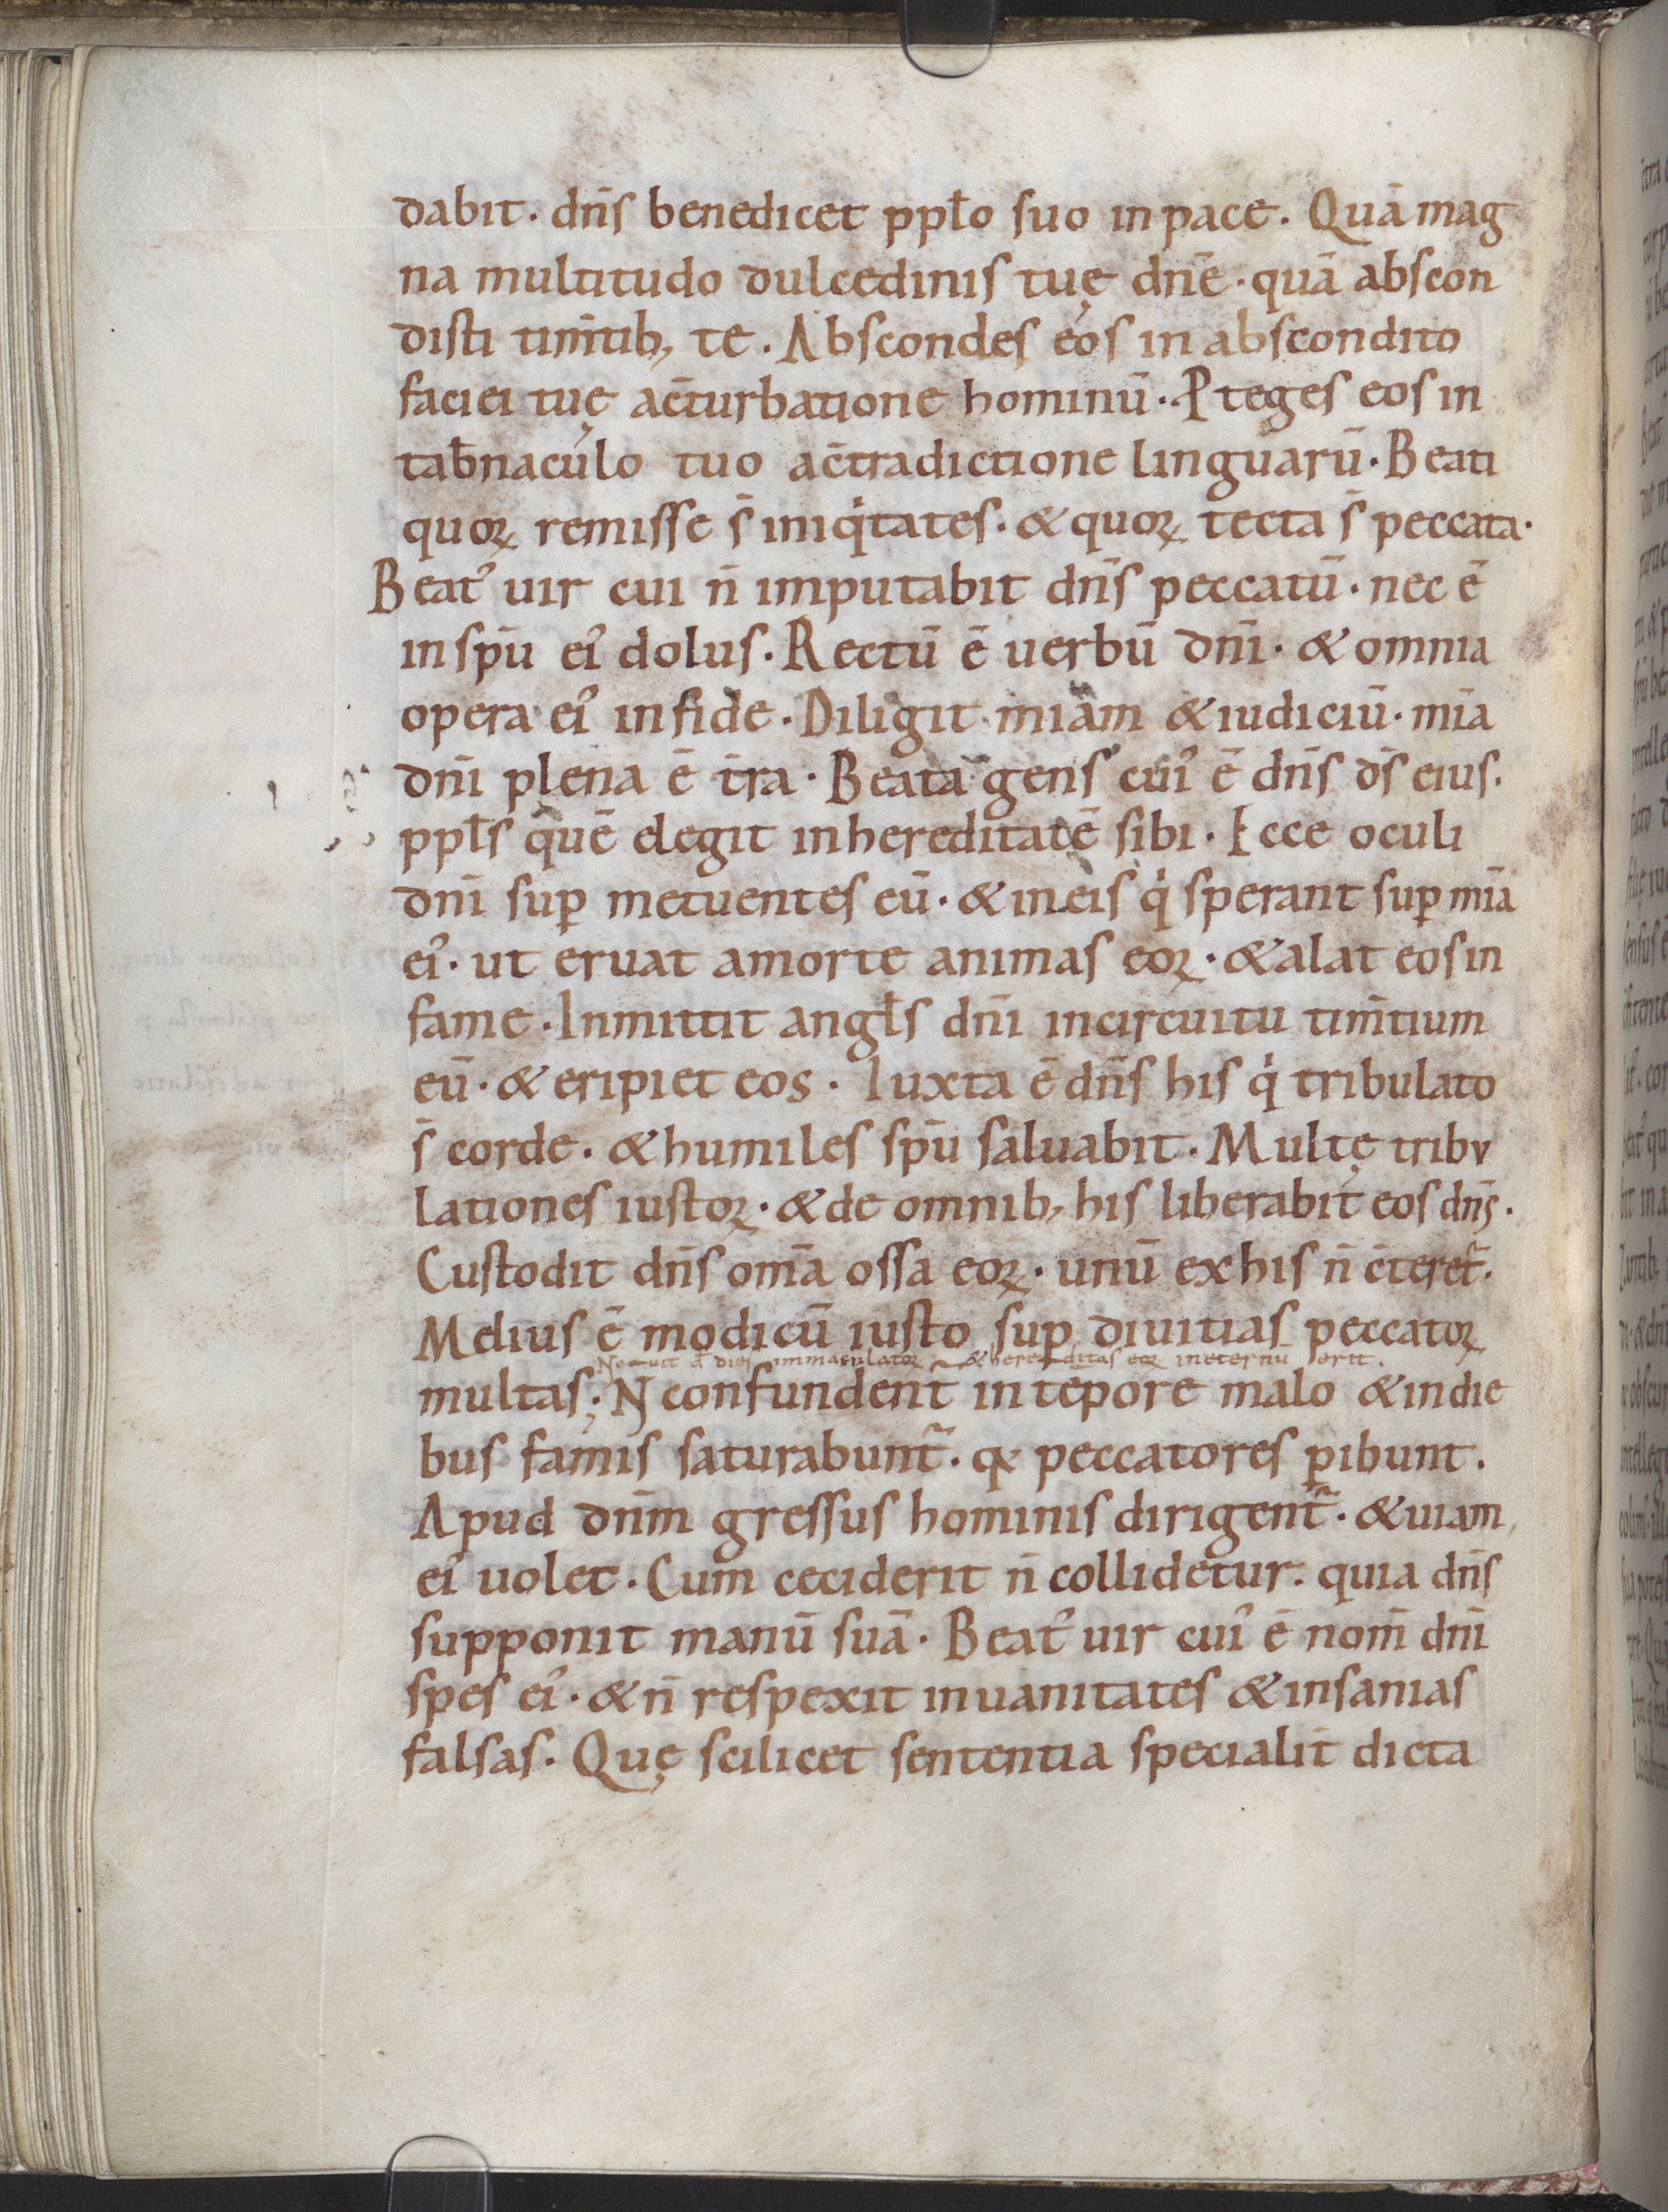 dabit · dn̄s benedicet pplo̅ suo in pace . Quā mag
na multitudo dulcedinis tuę dn̄e · quā abscon
disti tim̄tib; te . Abscondes eos in abscondito
faciei tuę ac̄turbatione hominū · Pteges eos in
tab̄naculo tuo ac̄tradictione linguarū · Beati
quoꝝ remisse s̄ iniqͥtates · & quoꝝ tecta s̄ peccata ·
Beatꝰ uir cui n̄ imputabit dn̄s peccatū · nec ē
in sp̄u eiꝰ dolus · Rectū ē uerbū dn̄i · & omnia
opera eiꝰ in fide · Diligit miam̄ & iudiciū · mīa
dn̄i plena ē t̄ra · Beata gens cuiꝰ ē dn̄s ds̄ eius .
ppl̄s quē elegit in hereditatē sibi · Ecce oculi
dn̄i suꝑ metuentes eū · & in eis qͥ sperant suꝑ mīa
eiꝰ · ut eruat a morte animas eoꝝ · & alat eos in
fame · Inmittit angl̄s dn̄i in circuitu tim̄tium
eū · & eripiet eos · Iuxta ē dn̄s his qͥ tribulato
s̄ corde · & humiles sp̄u saluabit · Multę tribu
lationes iustoꝝ · & de omnib; his liberabit eos dn̄s ·
Custodit dn̄s om̄a ossa eoꝝ · unū ex his n̄ c̄teret᷑ ·
Melius ē modicū iusto suꝑ diuitias peccatoꝝ
Nouit dies immaculatoꝝ & hereditas eoꝝ in eternū erit .
multas ; N̄ confundent᷑ in tēpore malo & in die
bus famis saturabunt᷑ · qͣ peccatores ꝑibunt .
Apud dn̄m gressus hominis dirigent᷑ · & uiam
eiꝰ uolet · Cum ceciderit n̄ collidetur · quia dn̄s
supponit manū suā · Beatꝰ uir cuiꝰ ē nom̄ dn̄i
spes eiꝰ · & n̄ respexit in uanitates & insanias
falsas · Quę scilicet sententia specialit̄ dicta